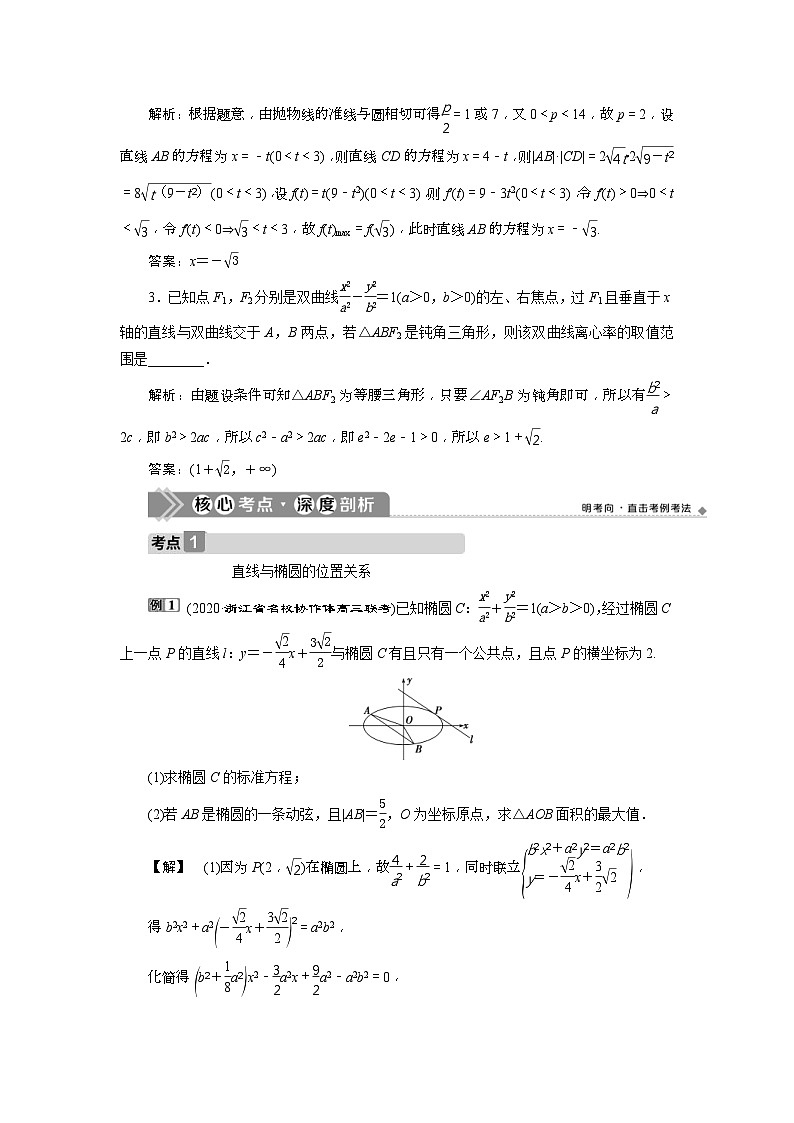 解析:根据题意,由抛物线的准线与圆相切可得p/2=1或7,又0<p<14,故p=2,设
直线AB的方程为x=-t(0<t<3),则直线CD的方程为x=4-t,则|AB|·|CD|=2√4t·2√9-t²
=8√t(9-t²)(0<t<3),设f(t)=t(9-t²)(0<t<3),则f′(t)=9-3t²(0<t<3),令f′(t)>0⇒0<t
<√3,令f′(t)<0⇒√3<t<3,故f(t)max=f(√3),此时直线AB的方程为x=-√3.
答案:x=-√3
3.已知点F₁,F₂分别是双曲线x²/a²-y²/b²=1(a>0,b>0)的左、右焦点,过F₁且垂直于x
轴的直线与双曲线交于A,B两点,若△ABF₂是钝角三角形,则该双曲线离心率的取值范
围是________.
解析:由题设条件可知△ABF₂为等腰三角形,只要∠AF₂B为钝角即可,所以有b²/a>
2c,即b²>2ac,所以c²-a²>2ac,即e²-2e-1>0,所以e>1+√2.
答案:(1+√2,+∞)
核心考点·深度剖析 明考向·直击考例考法
考点1
直线与椭圆的位置关系
例1 (2020·浙江省名校协作体高三联考)已知椭圆C:x²/a²+y²/b²=1(a>b>0),经过椭圆C
上一点P的直线l:y=-√2/4x+3√2/2与椭圆C有且只有一个公共点,且点P的横坐标为2.
y
A P
O x
B l
(1)求椭圆C的标准方程;
(2)若AB是椭圆的一条动弦,且|AB|=5/2,O为坐标原点,求△AOB面积的最大值.
【解】 (1)因为P(2,√2)在椭圆上,故4/a²+2/b²=1,同时联立{b²x²+a²y²=a²b² y=-√2/4x+3/2√2),
得b²x²+a²(-√2/4x+3√2/2)²=a²b²,
化简得(b²+1/8a²)x²-3/2a²x+9/2a²-a²b²=0,